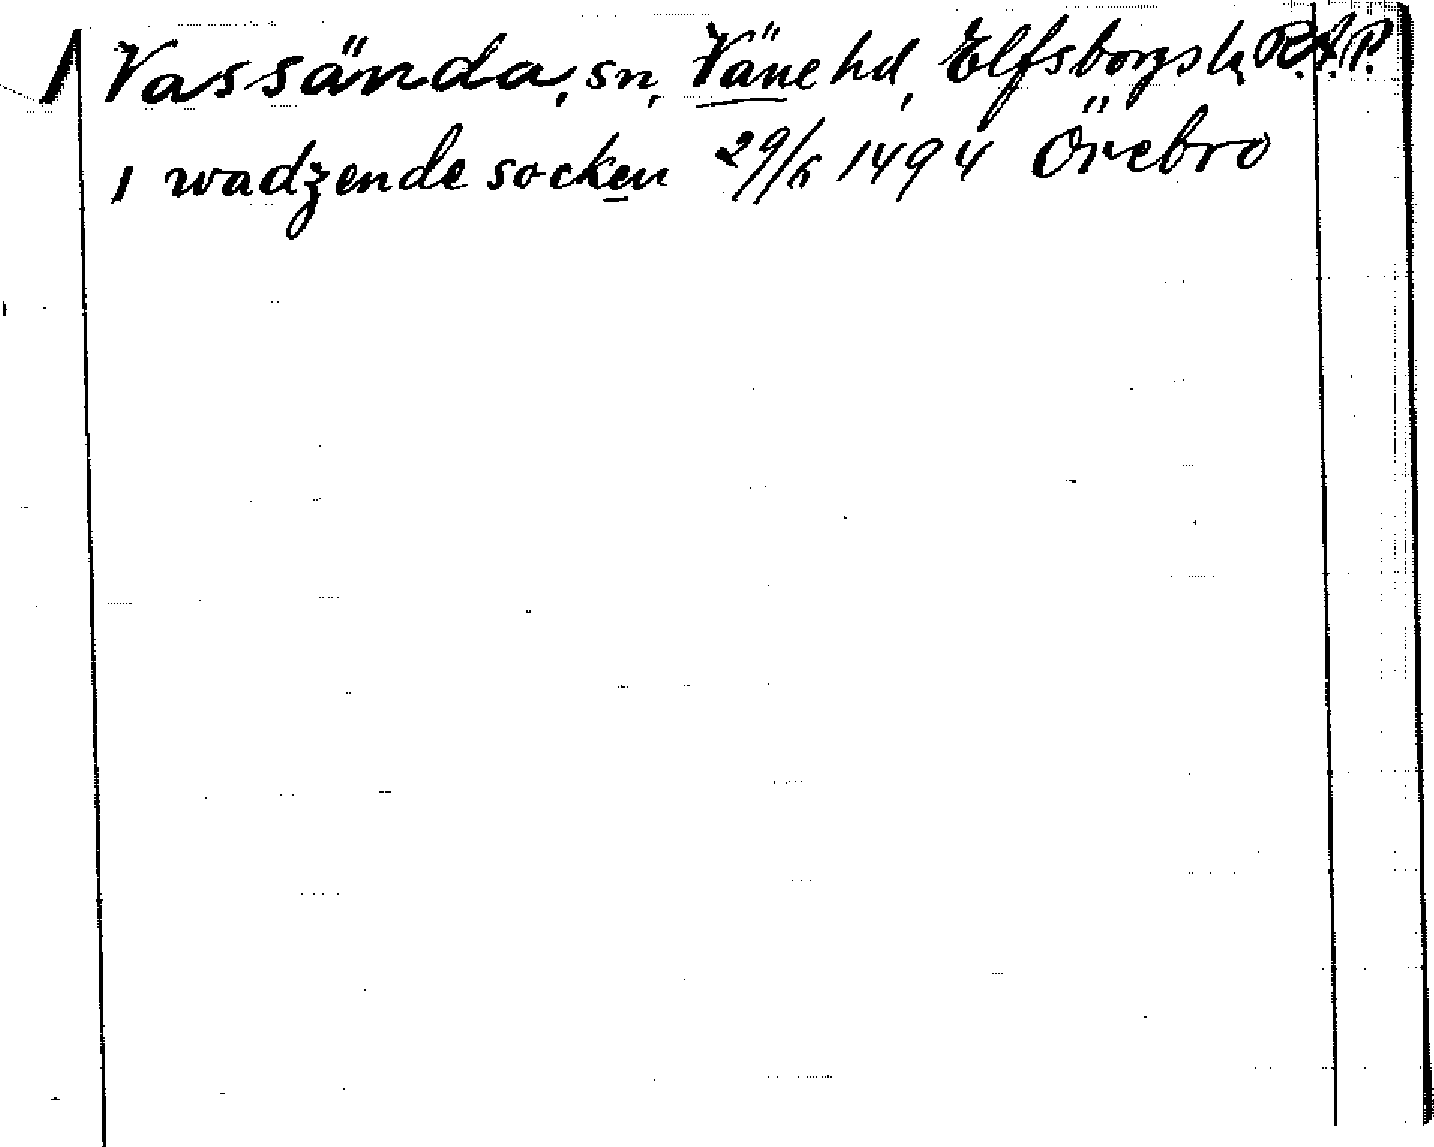 Vassända, sn, Väne hd, Elfsborgs l. R.A.P.
i wadzende socken 29/6 1494 Örebro